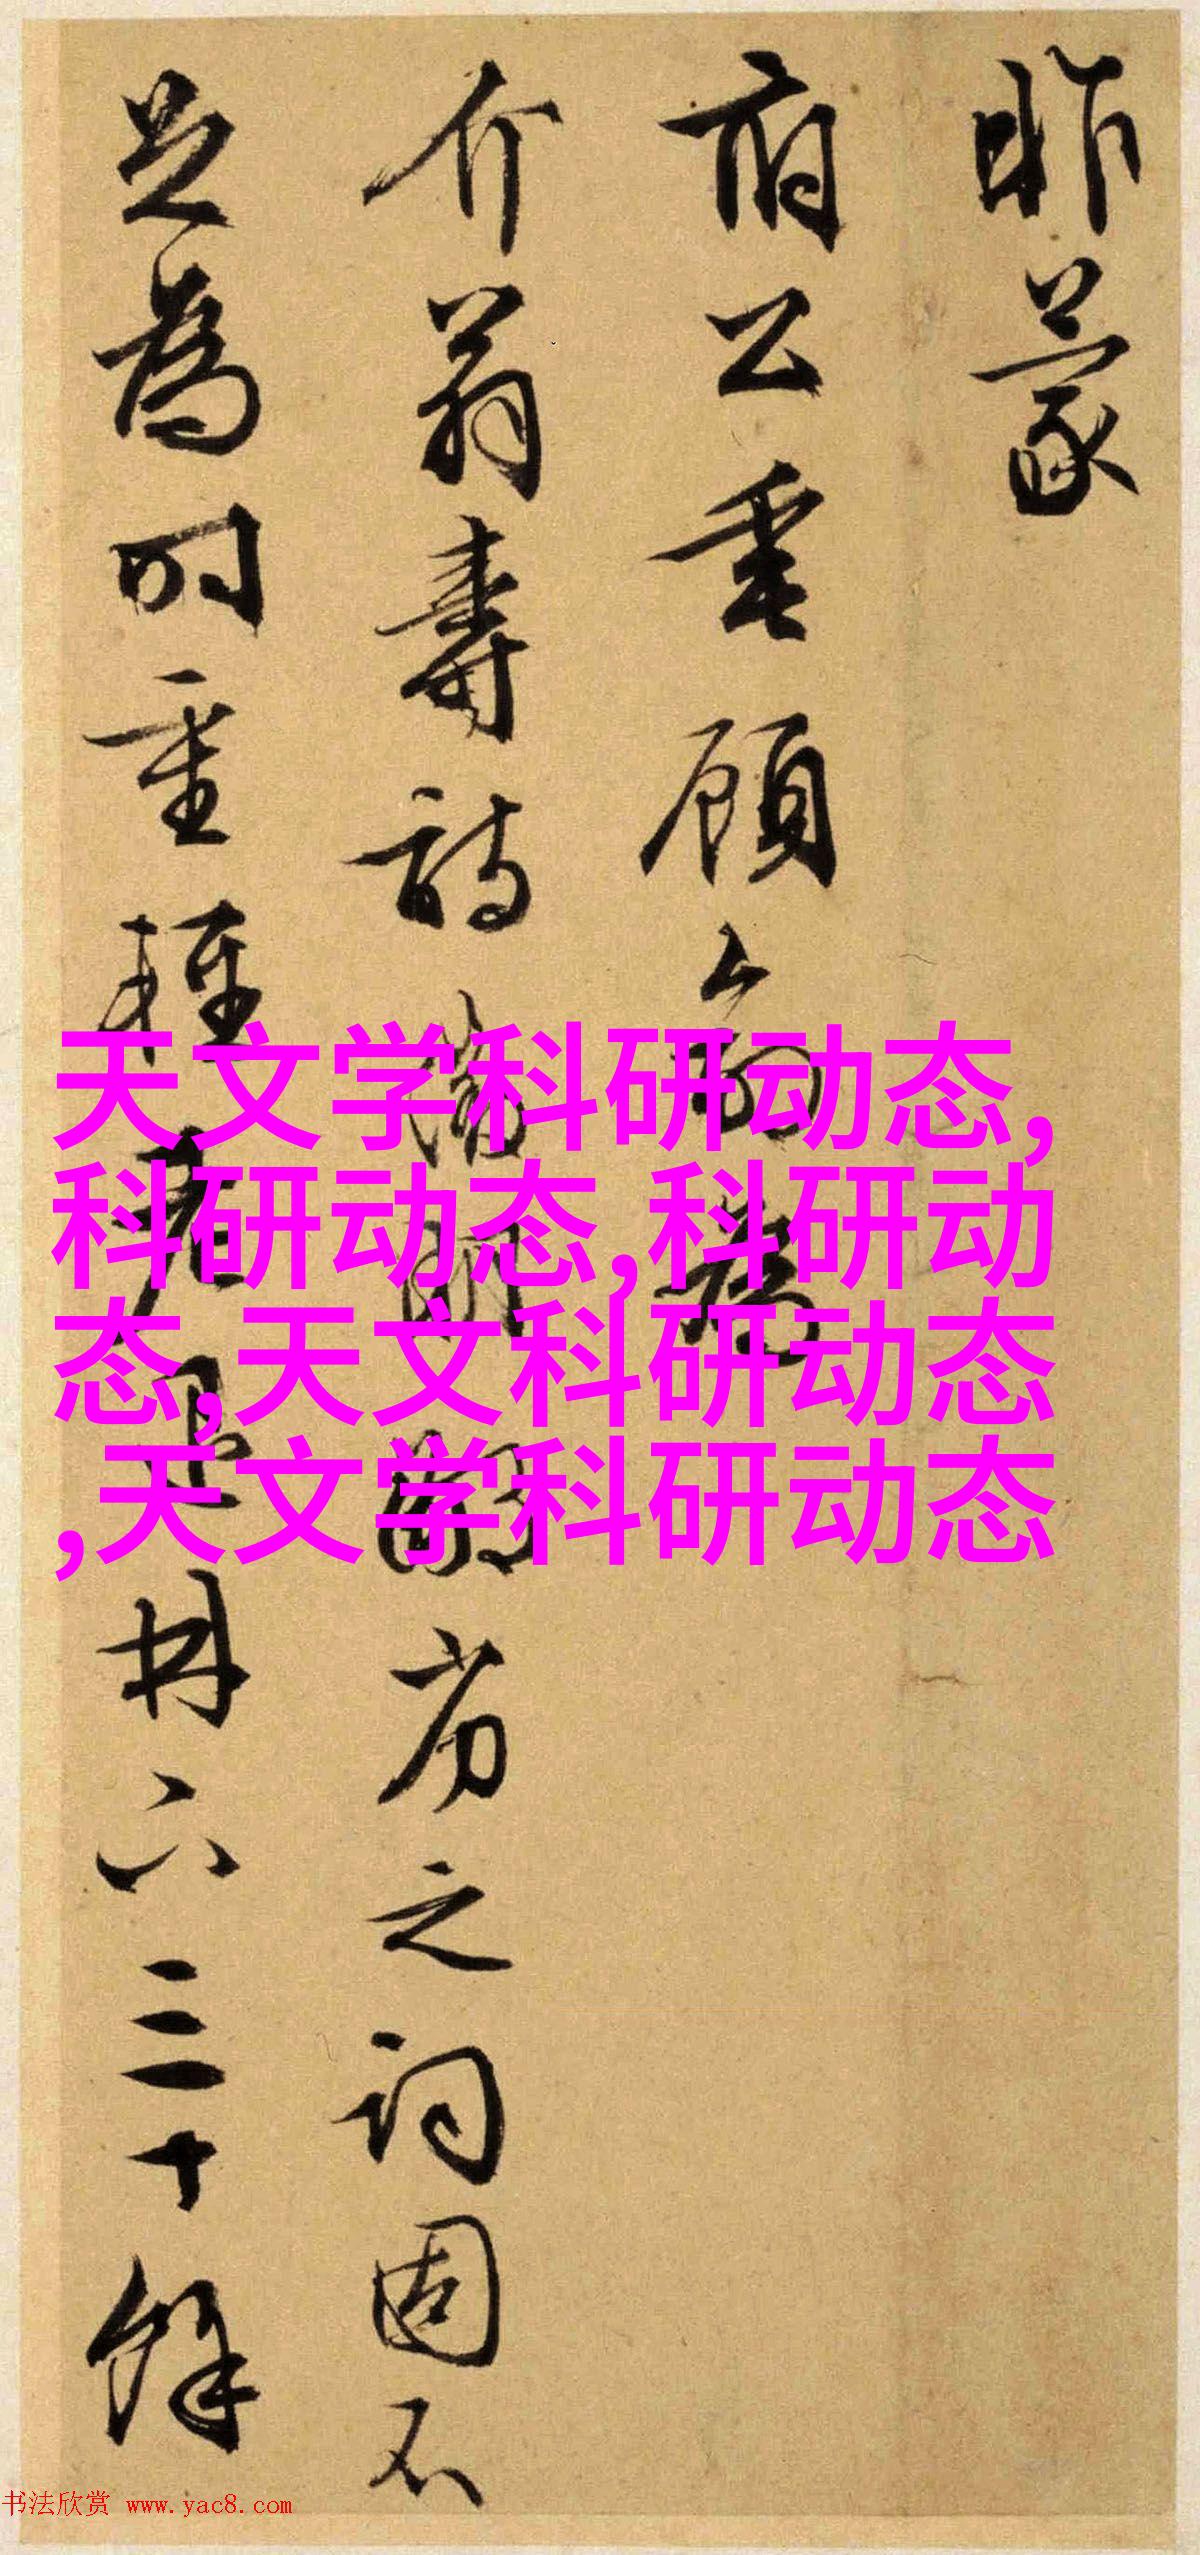 昨蒙
府公垂顧為
介翁壽詩劣之詞固不
足為時重輕三十餘
天文学科研动态,
科研动态,科研动
态,天文科研动态
,天文学科研动态
书法欣赏 www.yac8.com